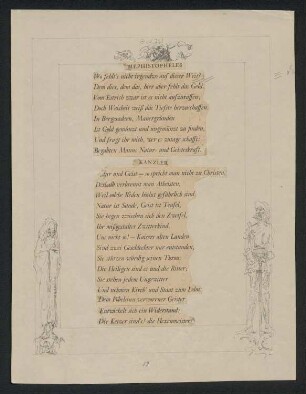 MEPHISTOPHELES
Wo fehlt's nicht irgendwo auf dieser Welt?
Dem dies, dem das, hier aber fehlt das Geld.
Vom Estrich zwar ist es nicht aufzuraffen;
Doch Weisheit weiß das Tiefste herzuschaffen.
In Bergesadern, Mauergründen
Ist Gold gemünzt und ungemünzt zu finden,
Und fragt ihr mich, wer es zutage schafft:
Begabten Manns Natur- und Geisteskraft.
KANZLER
Natur und Geist — so spricht man nicht zu Christen.
Deshalb verbrennt man Atheisten,
Weil solche Reden höchst gefährlich sind.
Natur ist Sünde, Geist ist Teufel,
Sie hegen zwischen sich den Zweifel,
Ihr mißgestaltet Zwitterkind.
Uns nicht so! — Kaisers alten Landen
Sind zwei Geschlechter nur entstanden,
Sie stützen würdig seinen Thron:
Die Heiligen sind es und die Ritter;
Sie stehen jedem Ungewitter
Und nehmen Kirch' und Staat zum Lohn.
Dem Pöbelsinn verworrner Geister
Entwickelt sich ein Widerstand:
Die Ketzer sind's! die Hexenmeister!